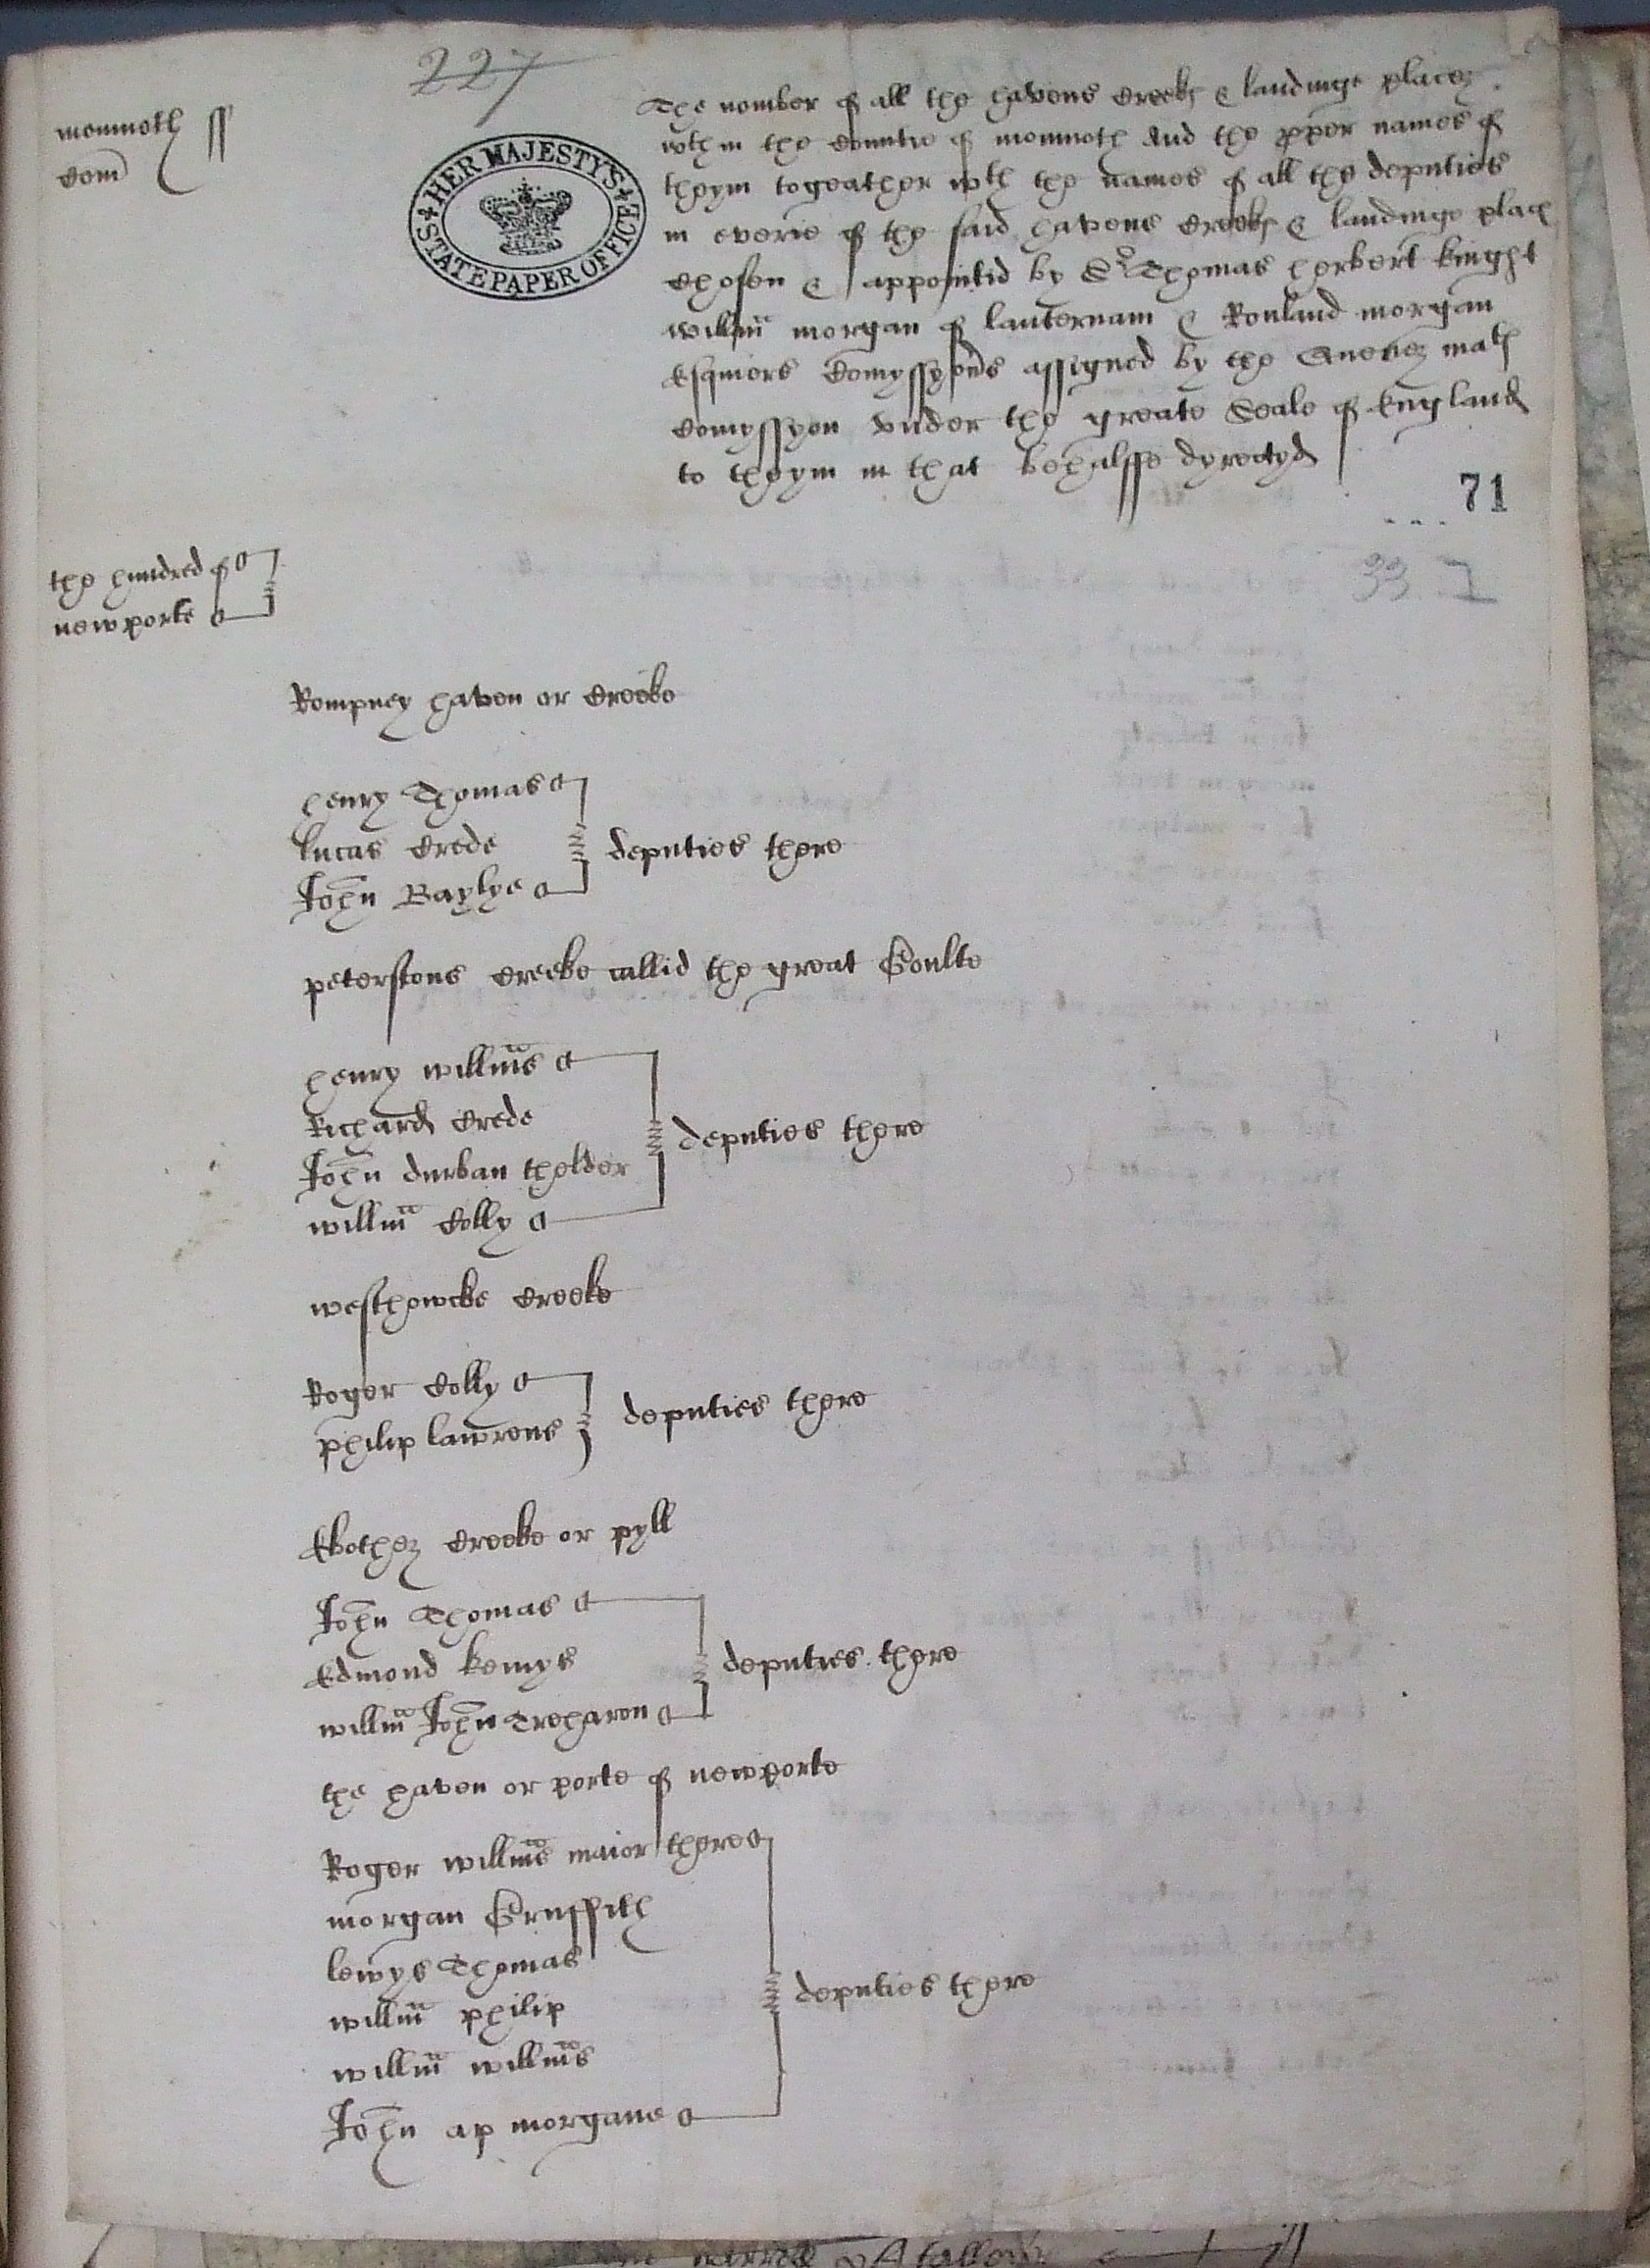 227
monmoth ss
Com
HER MAJESTY'S STATE PAPER OFFICE
The nomber of all the havens Creekes & landinge places
wthin the Countie of monmoth And the pper names of
theym togeather wth the names of all the deputies
in everie of the said havens Creekes & landinge places
Chosen & appointid by Sr Thomas herbert knight
Willm morgan of lanternam & Rouland morgan
Esquiors Comyssyons assigned by the Quenez maties
Comyssyon under the greate Seale of England
to theym in that behalffe dyrectyd
71
33 1
the hundred of
newporte
Rompney haven or Creeke
henry Thomas
lucas Crede
John Baylye
deputies there
peterstons Creeke callid the great Goulte
henry willms
Richard Crede
John durban thelder
willm Colly
deputies there
westhowcke Creeke
Roger Colly
philip lawrens
deputies there
Ebothez Creeke or pyll
John Thomas
Edmond kemys
willm John Treharon
deputies there
the haven or porte of newporte
Roger willms maior there
morgan Gruffith
lewys Thomas
willm philip
willm willms
John ap morgane
deputies there